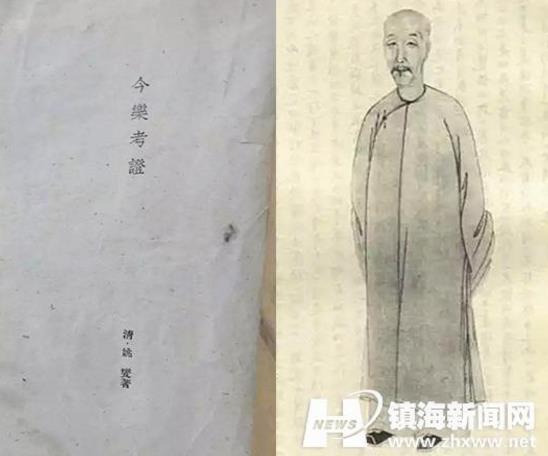 今樂考證
清·姚燮著
NEWS
镇海新闻网
www.zhxww.net